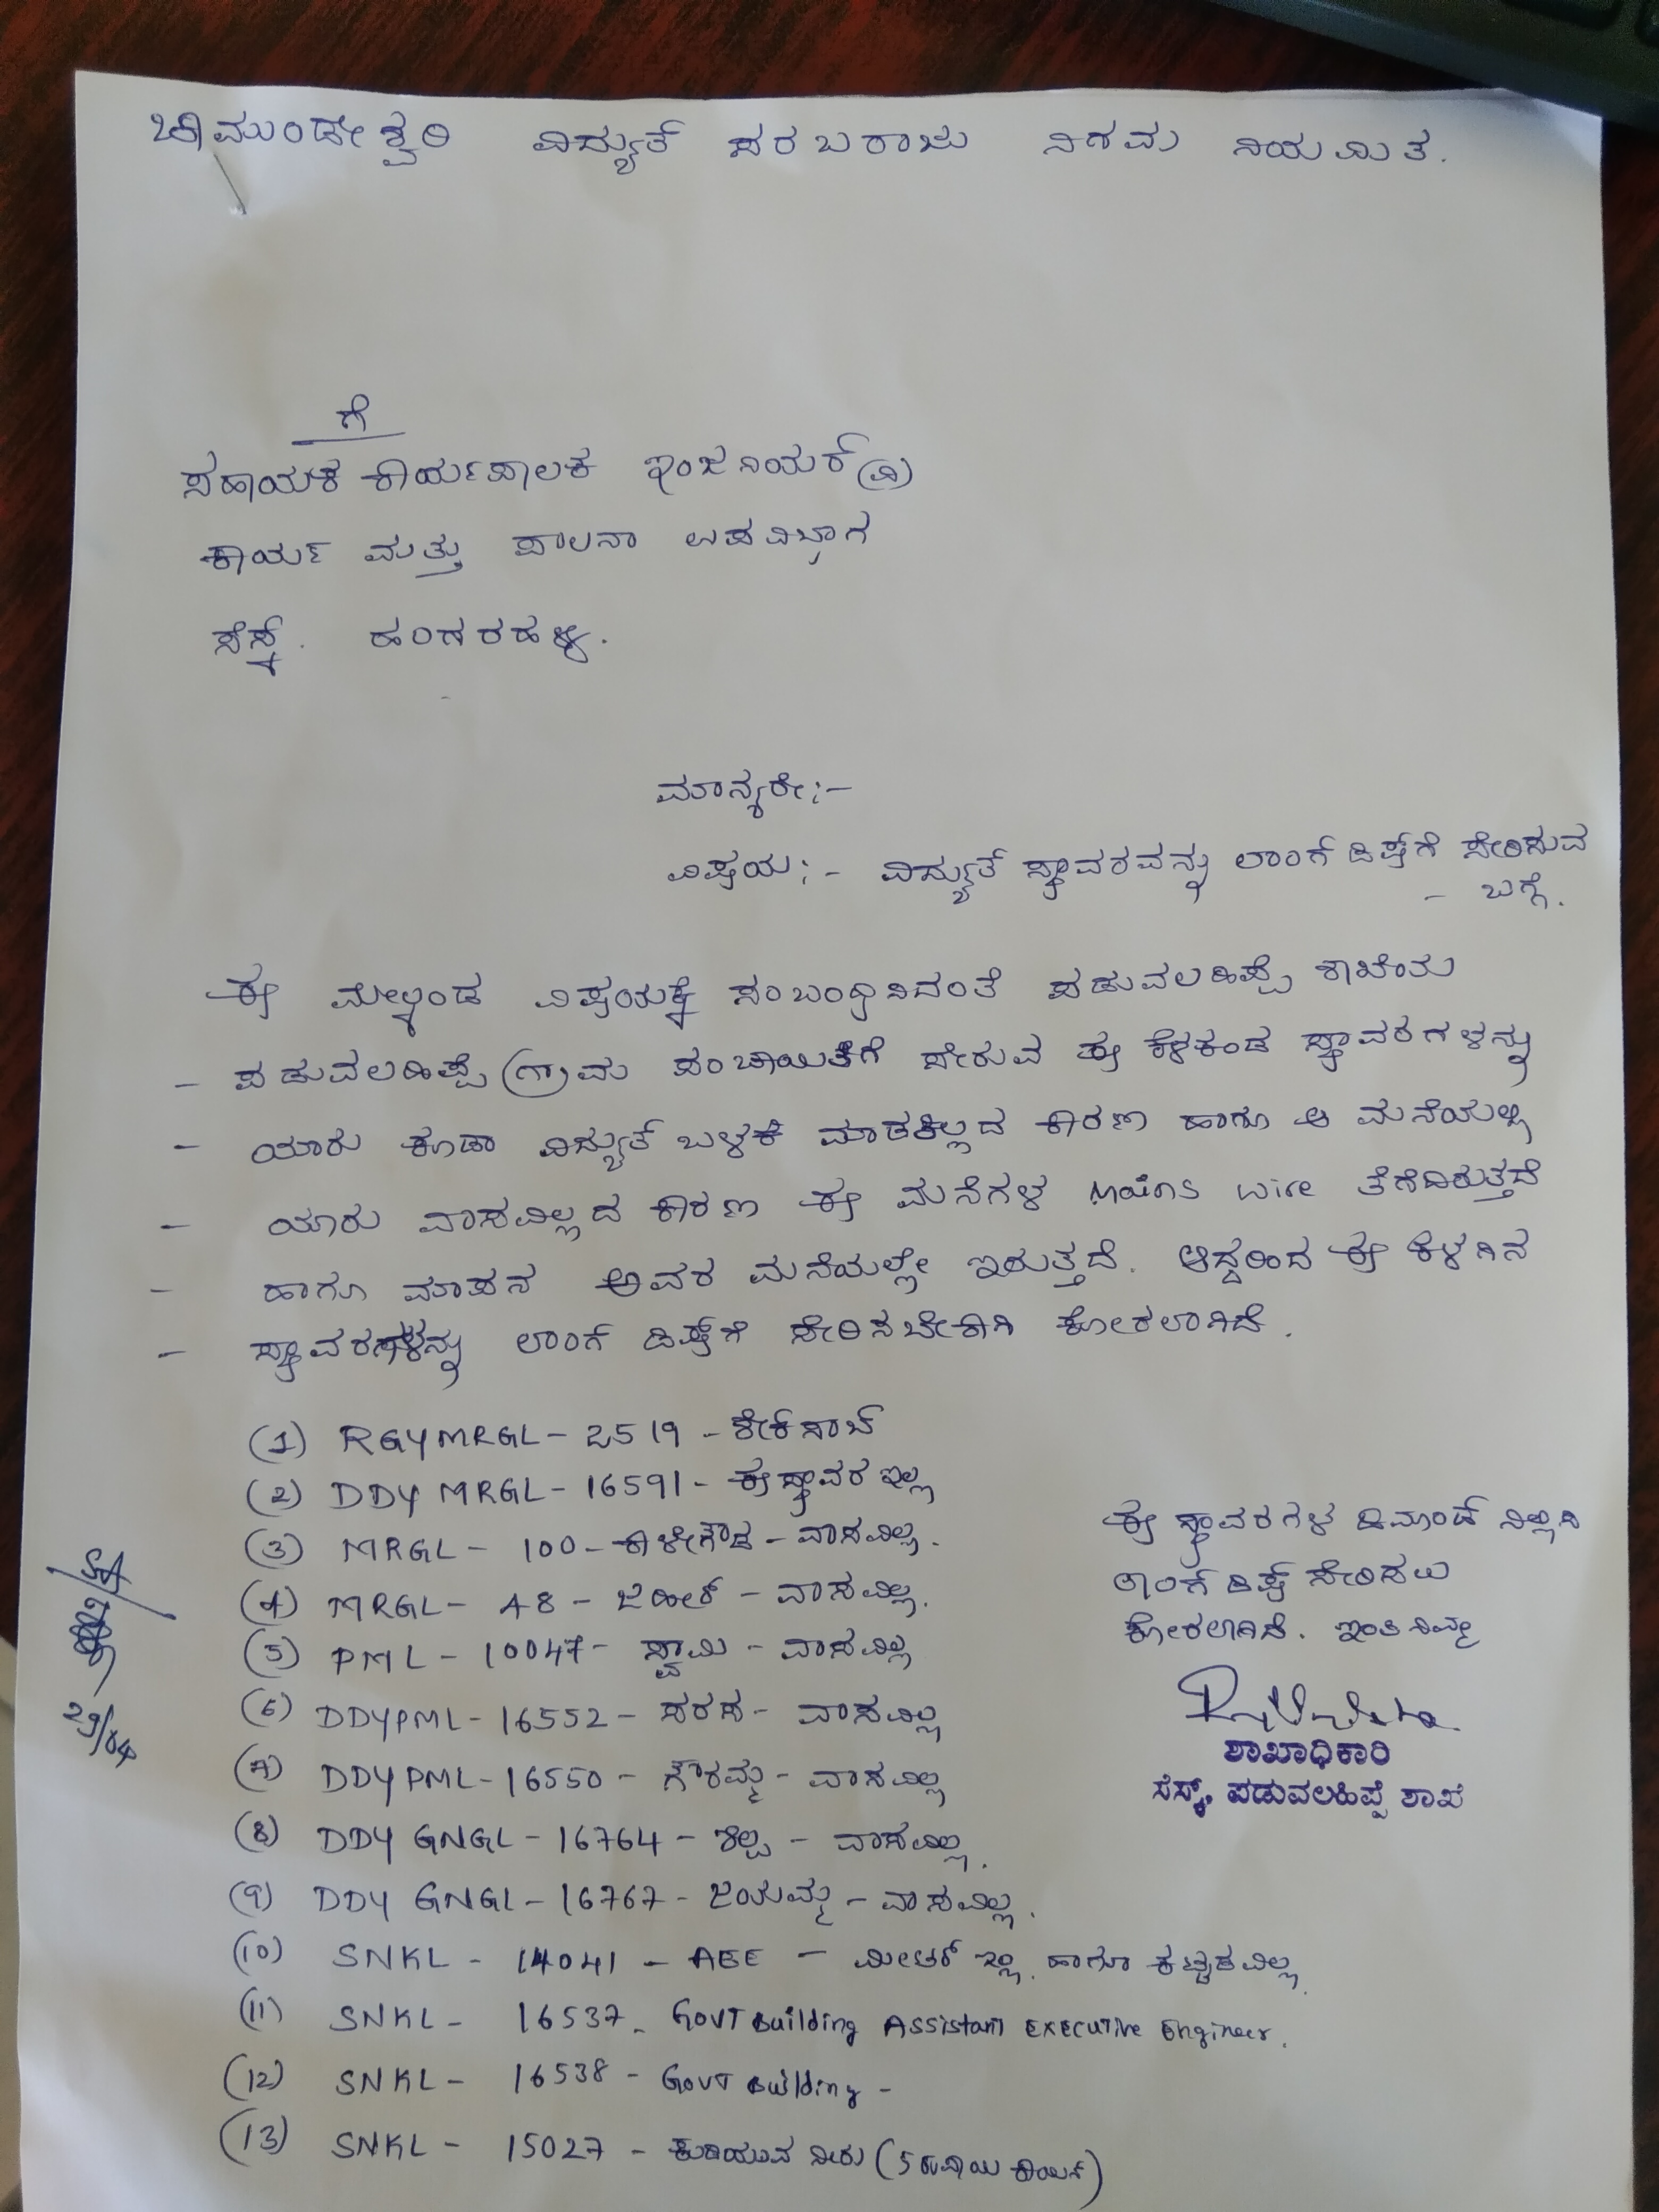 ಚಾಮುಂಡೇಶ್ವರಿ ವಿದ್ಯುತ್ ಸರಬರಾಜು ನಿಗಮ ನಿಯಮಿತ.
ಗೆ
ಸಹಾಯಕ ಕಾರ್ಯಪಾಲಕ ಇಂಜನಿಯರ್ (ವಿ)
ಕಾರ್ಯ ಮತ್ತು ಪಾಲನಾ ಉಪವಿಭಾಗ
ಸೆಸ್ಕ್. ಹಂಗರಹಳ್ಳಿ.
ಮಾನ್ಯರೇ:-
ವಿಷಯ:- ವಿದ್ಯುತ್ ಸ್ಥಾವರವನ್ನು ಲಾಂಗ್ ಡಿಸ್ಕ್‌ಗೆ ಸೇರಿಸುವ
- ಬಗ್ಗೆ.
ಈ ಮೇಲ್ಕಂಡ ವಿಷಯಕ್ಕೆ ಸಂಬಂಧಿಸಿದಂತೆ ಪಡುವಲಹಿಪ್ಪೆ ಶಾಖೆಯ
- ಪಡುವಲಹಿಪ್ಪೆ ಗ್ರಾಮ ಪಂಚಾಯಿತಿಗೆ ಸೇರುವ ಈ ಕೆಳಕಂಡ ಸ್ಥಾವರಗಳನ್ನು
- ಯಾರು ಕೂಡಾ ವಿದ್ಯುತ್ ಬಳಕೆ ಮಾಡತ್ತಿಲ್ಲದ ಕಾರಣ ಹಾಗೂ ಆ ಮನೆಯಲ್ಲಿ
- ಯಾರು ವಾಸವಿಲ್ಲದ ಕಾರಣ ಈ ಮನೆಗಳ Mains wire ತೆಗೆದಿರುತ್ತದೆ
- ಹಾಗೂ ಮಾಪನ ಅವರ ಮನೆಯಲ್ಲೇ ಇರುತ್ತದೆ. ಆದ್ದರಿಂದ ಈ ಕೆಳಗಿನ
- ಸ್ಥಾವರಗಳನ್ನು ಲಾಂಗ್ ಡಿಸ್ಕ್‌ಗೆ ಸೇರಿಸಬೇಕಾಗಿ ಕೋರಲಾಗಿದೆ.
(1) RGYMRGL - 2519 - ಶೇಕ್ ಸಾಬ್
(2) DDYMRGL - 16591 - ಈ ಸ್ಥಾವರ ಇಲ್ಲ
(3) MRGL - 100 - ಕಾಳೇಗೌಡ - ವಾಸವಿಲ್ಲ.
(4) MRGL - 48 - ಜಹೀರ್ - ವಾಸವಿಲ್ಲ.
(5) PML - 10047 - ಸ್ವಾಮಿ - ವಾಸವಿಲ್ಲ
(6) DDYPML - 16552 - ಸರಸ - ವಾಸವಿಲ್ಲ
(7) DDYPML - 16550 - ಗೌರಮ್ಮ - ವಾಸವಿಲ್ಲ
(8) DDYGNGL - 16764 - ಶಿಲ್ಪ - ವಾಸವಿಲ್ಲ.
(9) DDYGNGL - 16767 - ಜಯಮ್ಮ - ವಾಸವಿಲ್ಲ.
(10) SNKL - 14041 - AEE - ಮೀಟರ್ ಇಲ್ಲ. ಹಾಗೂ ಕಟ್ಟಡವಿಲ್ಲ.
(11) SNKL - 16537 - GOVT Building Assistant Executive Engineer.
(12) SNKL - 16538 - Govt Building -
(13) SNKL - 15027 - ಕುಡಿಯುವ ನೀರು (5 ರೂಪಾಯಿ ಕಾಯಿನ್)
ಈ ಸ್ಥಾವರಗಳ ಡಿಮಾಂಡ್ ನಿಲ್ಲಿಸಿ
ಲಾಂಗ್ ಡಿಸ್ಕ್ ಸೇರಿಸಲು
ಕೋರಲಾಗಿದೆ. ಇಂತಿ ನಿಮ್ಮ
ಶಾಖಾಧಿಕಾರಿ
ಸೆಸ್ಕ್, ಪಡುವಲಹಿಪ್ಪೆ ಶಾಖೆ
29/04